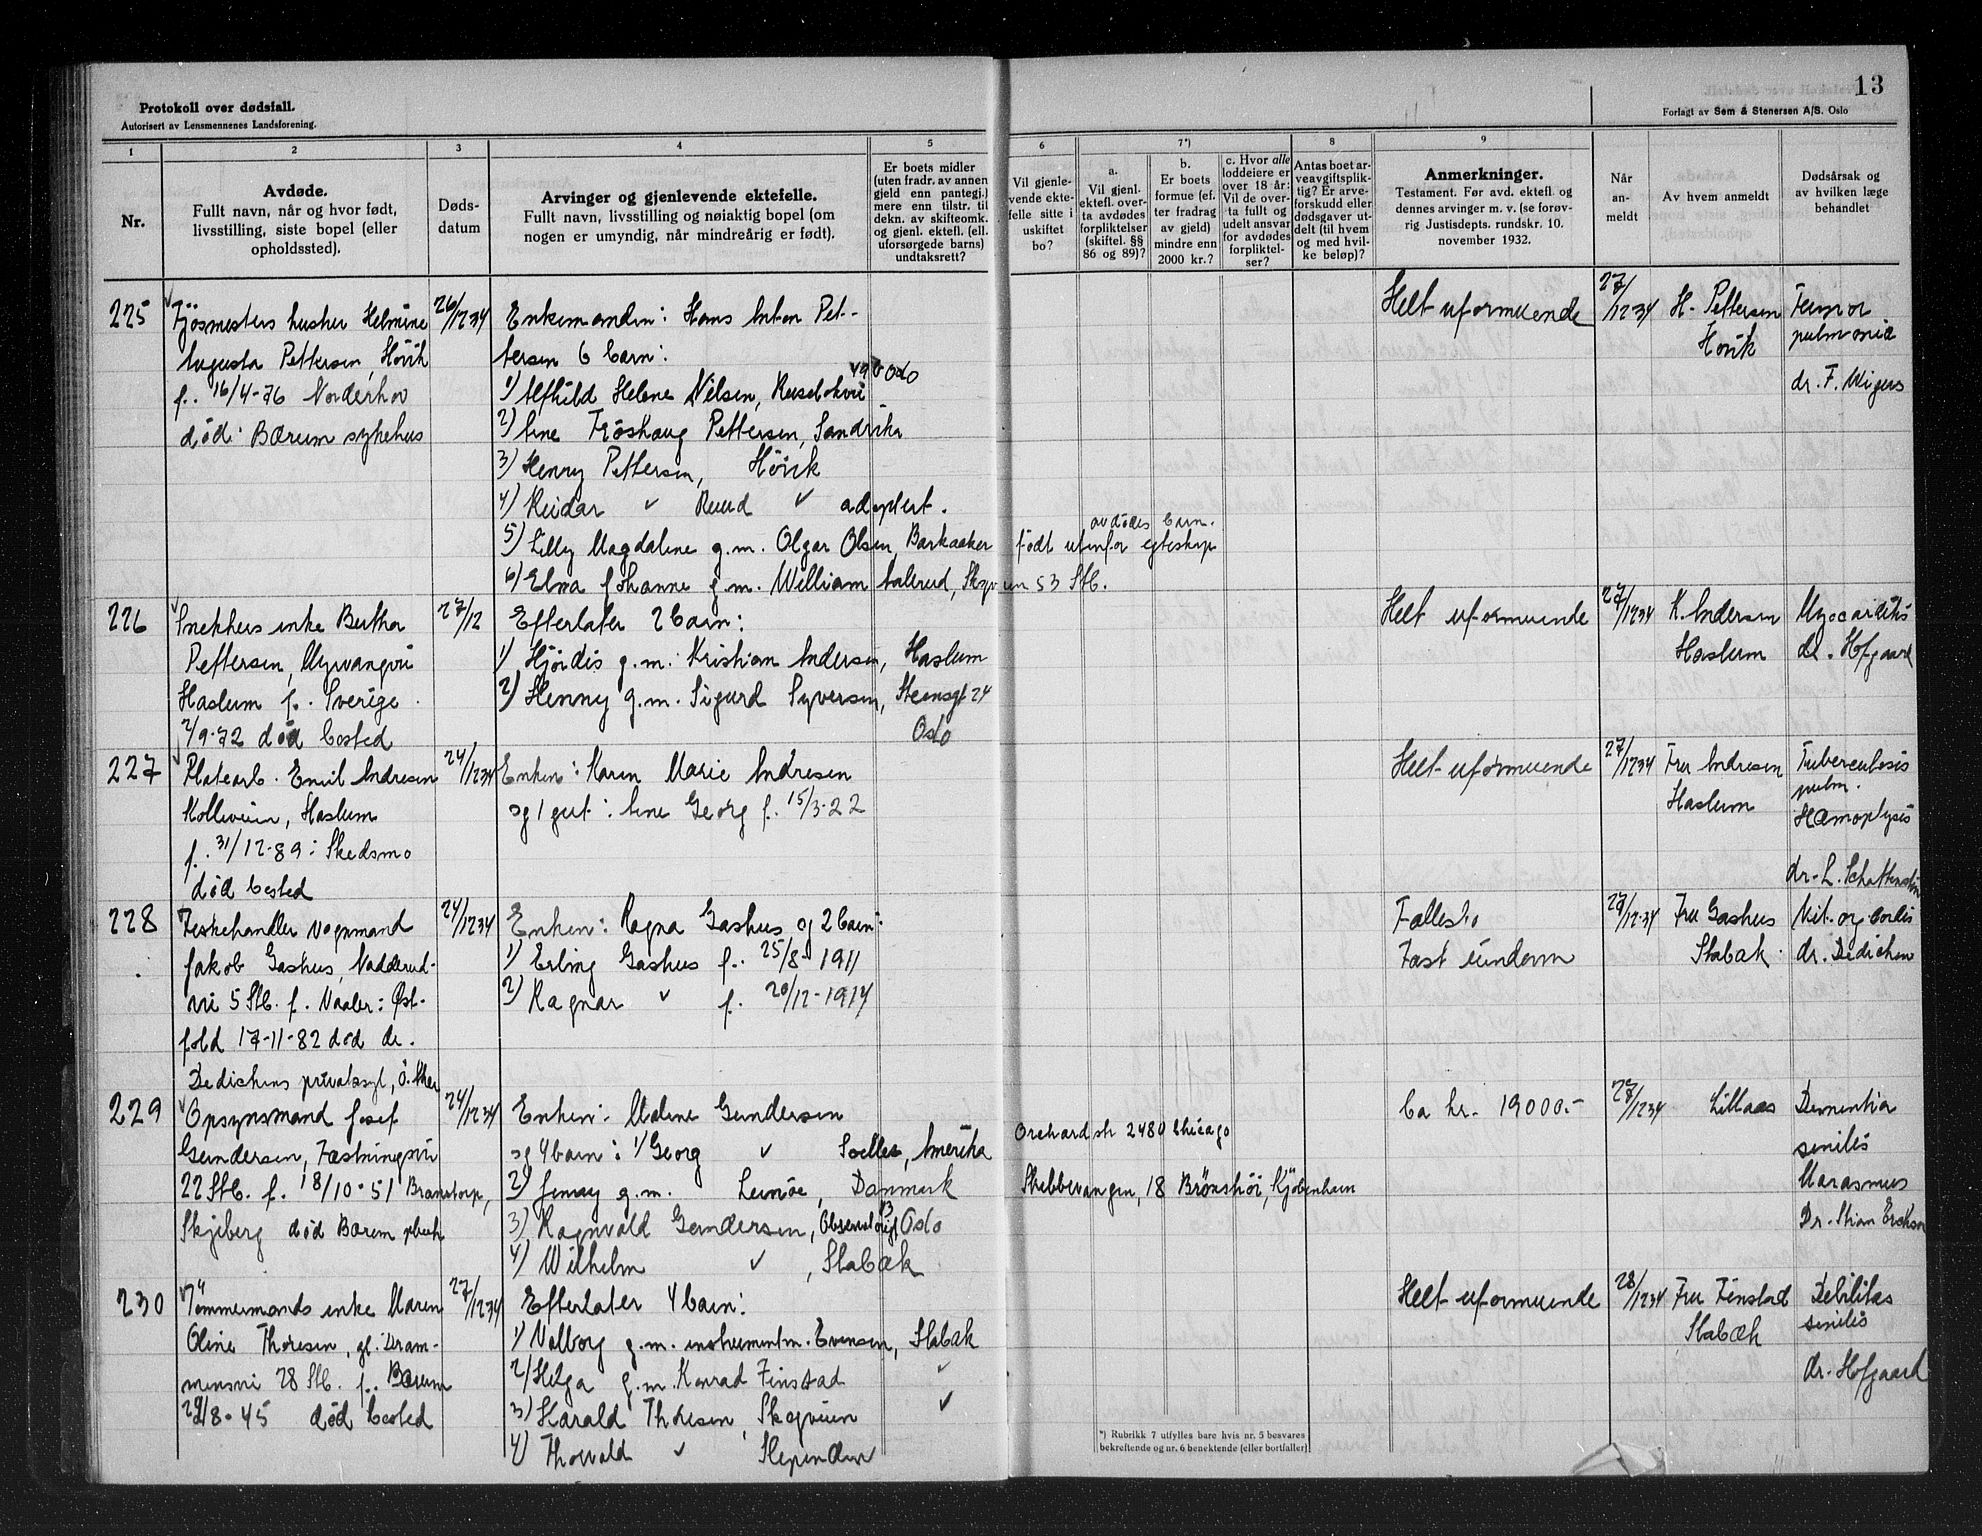 13
Protokoll over dødsfall.
Autorisert av Lensmennenes Landsforening.
Forlagt av Sem & Stenersen A/S. Oslo
1
2
3
4
5
6
7*)
8
9
Nr.
Avdøde.
Fullt navn, når og hvor født,
livsstilling, siste bopel (eller
opholdssted).
Døds-
datum
Arvinger og gjenlevende ektefelle.
Fullt navn, livsstilling og nøiaktig bopel (om
nogen er umyndig, når mindreårig er født).
Er boets midler
(uten fradr. av annen
gjeld enn pantegj.)
mere enn tilstr. til
dekn. av skifteomk.
og gjenl. ektefl. (ell.
uforsørgede barns)
undtaksrett?
Vil gjenle-
vende ekte-
felle sitte i
uskiftet
bo?
a.
Vil gjenl.
ektefl. over-
ta avdødes
forpliktelser
(skiftel. §§
86 og 89)?
b.
Er boets
formue (ef-
ter fradrag
av gjeld)
mindre enn
2000 kr.?
c. Hvor alle
loddeiere er
over 18 år:
Vil de over-
ta fullt og
udelt ansvar
for avdødes
forpliktel-
ser?
Antas boet ar-
veavgiftsplik-
tig? Er arve-
forskudd eller
dødsgaver ut-
delt (til hvem
og med hvil-
ke beløp)?
Anmerkninger.
Testament. Før avd. ektefl. og
dennes arvinger m. v. (se forøv-
rig Justisdepts. rundskr. 10.
november 1932.
Når
an-
meldt
Av hvem anmeldt
Dødsårsak og
av hvilken læge
behandlet
225
Fjøsmesters hustru Helmine
Augusta Pettersen, Høvik
f. 16/4-76 Norderhov
død: Bærum sykehus
26/12 34
Enkemanden: Hans Anton Pet-
tersen 6 barn:
1) Alfhild Helene Nilsen, Ruseløkvei
49b Oslo
2) Arne Frøshaug Pettersen, Sandvika
3) Henry Pettersen, Høvik
4) Reidar " Ruud " adoptert.
5) Lilly Magdalene g.m. Olgar Olsen, Barkaaker
avdødes barn.
født utenfor egteskap
6) Elna Johanne g.m. William Aalerud, Skogveien 53 Stb.
Helt uformuende
27/12 34
H. Pettersen
Høvik
Tumor
pulmonia
dr. F. Wigers
226
Snekkers enke Bertha
Pettersen, Myrvangvei
Haslum f. Sverige
2/9-72 død bosted
27/12
Efterlater 2 barn:
1) Hjørdis g.m. Kristian Andersen, Haslum
2) Henny g.m. Sigurd Syversen, Steensgt 24
Oslo
Helt uformuende
27/12 34
K. Andersen
Haslum
Myocarditis
dr. Hofgaard
227
Platearb. Emil Andresen
Kolleveien, Haslum
f. 31/12-89: Skedsmo
død bosted
24/12 34
Enken: Karen Marie Andresen
og 1 gut: Arne Georg f. 15/3-22
Helt uformuende
27/12 34
Fru Andresen
Haslum
Tuberculosis
pulm.
Hæmoptysis
dr. L. Schattenstein
228
Fiskehandler Vognmand
Jakob Gashus, Nadderud-
vei 5 Stb. f. Vaaler: Øst-
fold 17-11-82 død dr.
Dedichens privatasyl, Ö. Aker
24/12 34
Enken: Ragna Gashus og 2 barn:
1) Erling Gashus f. 25/8-1911
2) Ragnar " f. 20/12-1914
Fællesbo
Fast eiendom
27/12-34
Fru Gashus
Stabæk
Vit. org. cordis
dr. Dedichen
229
Opsynsmand Josef
Gundersen, Fæstningsvei
22 Stb. f. 18/10-51
Skjeberg død Bærum
24/12 34
Enken: Malene Gundersen
og 4 barn: 1) Georg " Amerika
Orchard str 2480 Chicago
2) Jenny g.m. Lunøe, Danmark
Skabbevangen, 18 Brönshöi, Kjöbenhavn
3) Ragnvald Gundersen, Observatorigt 13 Oslo
4) Wilhelm " , Stabæk
Ca kr. 19000.-
27/12 34
Lillaas
Dementia
senilis
Marasmus
Dr. Stian Erichsen
230
Tømmermands enke Maren
Oline Thoresen, gl. Dram-
mensvei 28 Stb. f. Bærum
29/8-45 død bosted
27/12 34
Efterlater 4 barn:
1) Valborg g.m. instrumentm. Evensen, Stabæk
2) Helga g.m. Konrad Finstad "
3) Harald Thoresen, Skogveien "
4) Thorvald " Slependen
Helt uformuende
28/12 34
Fru Finstad
Stabæk
Debilitas
senilis
dr. Hofgaard
*) Rubrikk 7 utfylles bare hvis nr. 5 besvares
bekreftende og nr. 6 benektende (eller bortfaller)